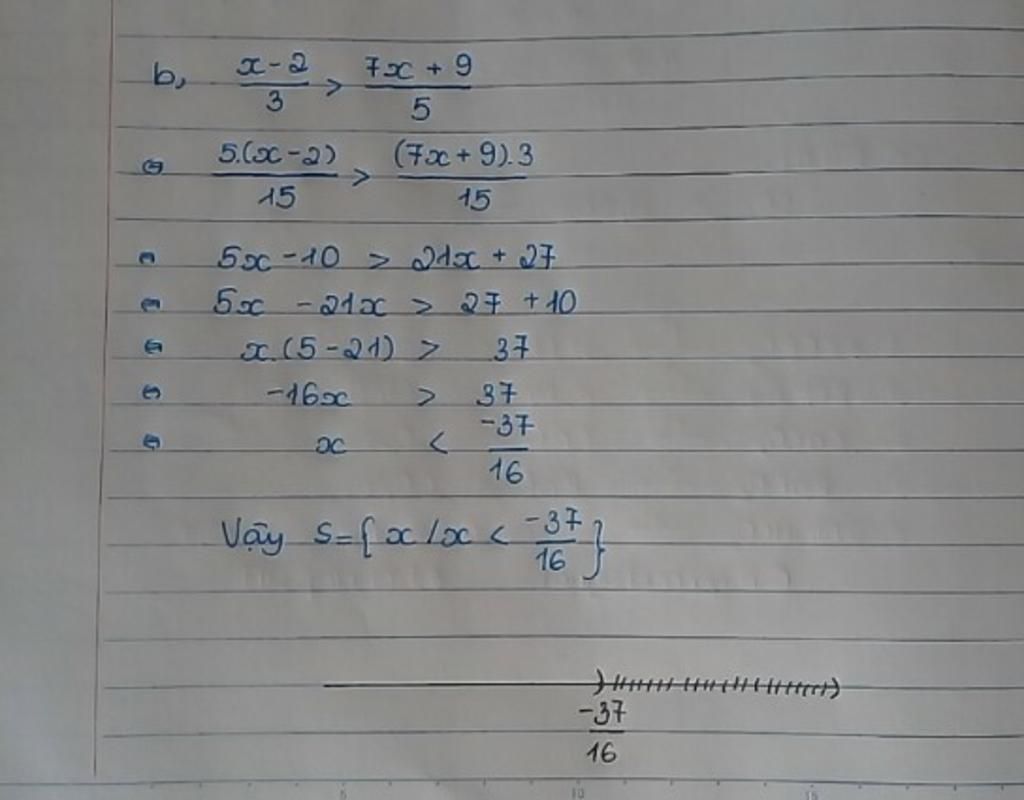 b, \frac{x-2}{3} > \frac{7x+9}{5}
⇔ \frac{5.(x-2)}{15} > \frac{(7x+9).3}{15}
⇔ 5x - 10 > 21x + 27
⇔ 5x - 21x > 27 + 10
⇔ x.(5-21) > 37
⇔ -16x > 37
⇔ x < \frac{-37}{16}
Vậy S={x/x < \frac{-37}{16}}
\frac{-37}{16}
5 10 15